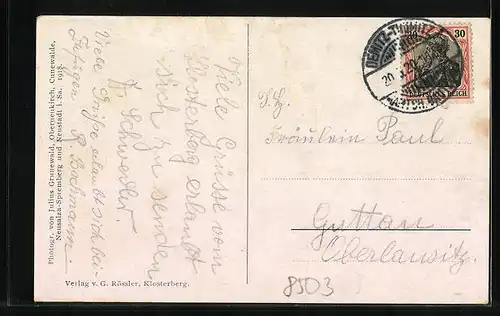 Photogr. von Julius Grunewald, Oberneukirch, Cunewalde,
Neusalza-Spremberg und Neustadt i. Sa. 1918.
Viele Grüsse vom
Klosterberg erlaubt
sich zu senden
Schwester.
Viele Grüße erlaubt sich bei-
zufügen
Verlag v. G. Rössler, Klosterberg.
DEMITZ-THUMITZ
20
30
REICH
Fräulein Paul
Guttau
Oberlausitz.
8503